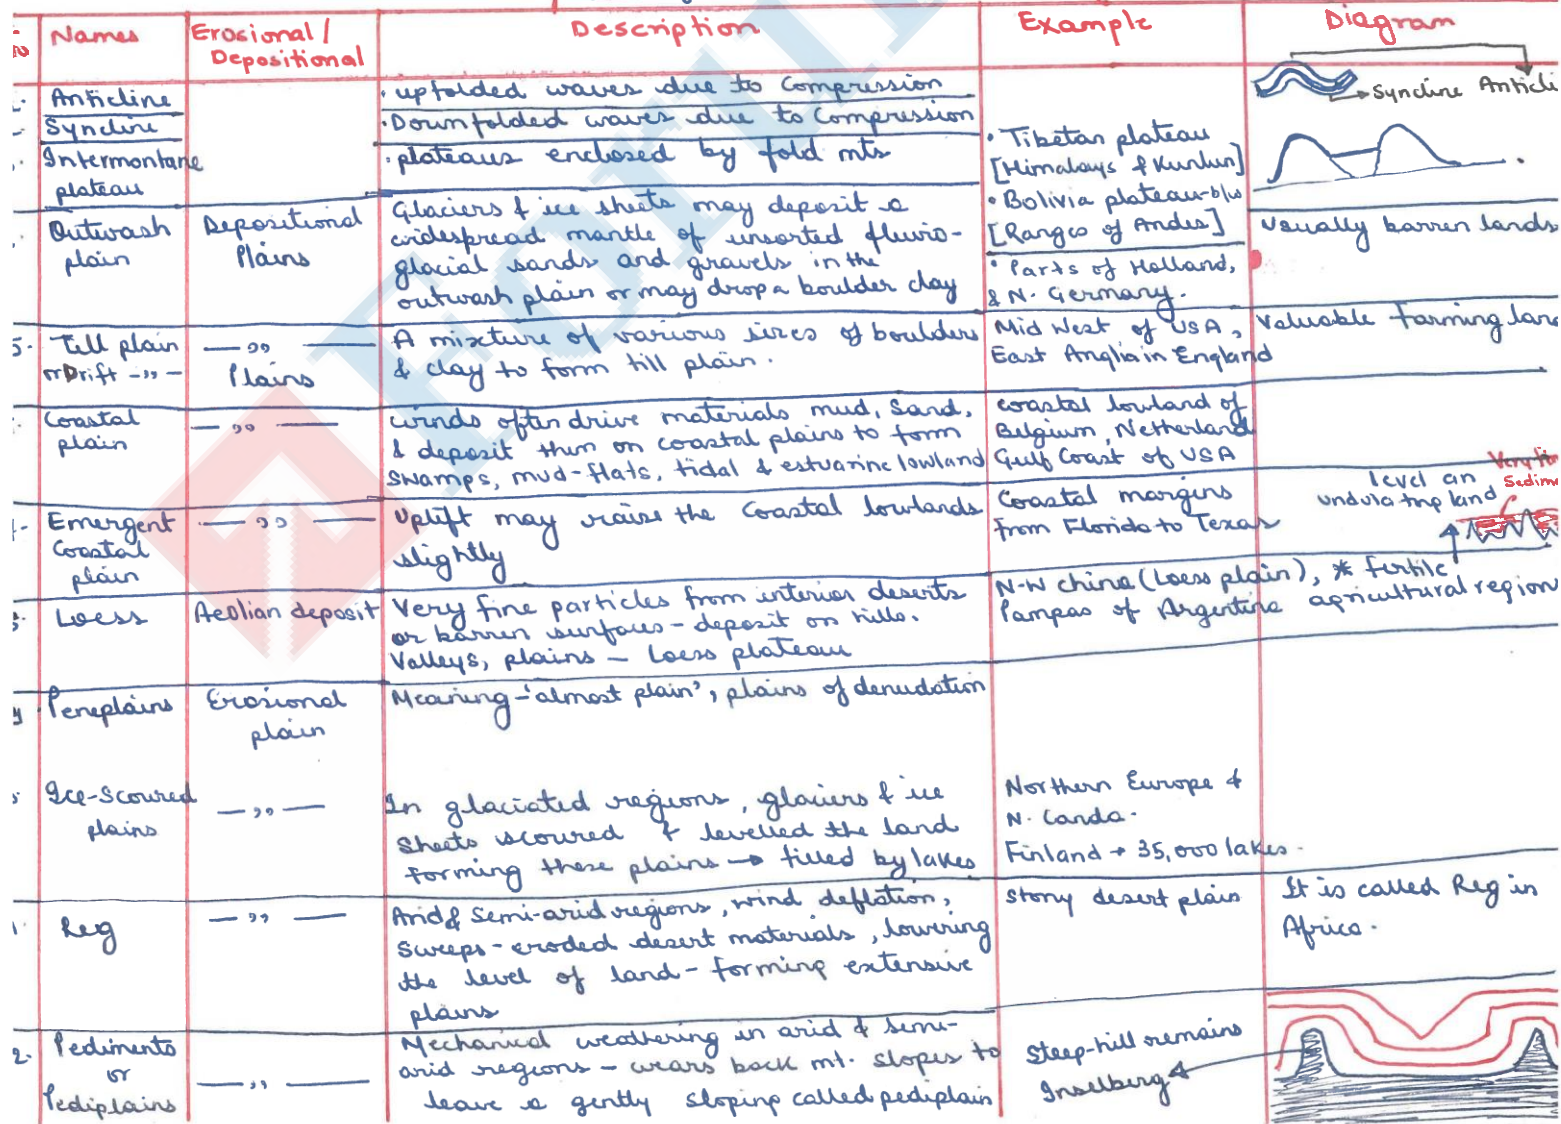 Names
Erosional /
Depositional
Description
Example
Diagram
Anticline
upfolded waves due to Compression
Syncline Anticli
Syncline
Downfolded waves due to Compression
Intermontane
plateau
plateaus enclosed by fold mts
Tibetan plateau
[Himalays & Kunlun]
Bolivia plateau-b/w
[Ranges of Andes]
Outwash
plain
Depositional
Plains
Glaciers & ice sheets may deposit a
widespread mantle of unsorted fluvio-
glacial sands and gravels in the
outwash plain or may drop a boulder clay
Parts of Holland,
& N. Germany.
Usually barren lands
5. Till plain
or Drift -"-
— " —
Plains
A mixture of various sizes of boulders
& clay to form till plain.
Mid West of USA,
East Anglia in England
Valuable farming land
Coastal
plain
— " —
winds often drive materials mud, sand,
& deposit them on coastal plains to form
swamps, mud-flats, tidal & estuarine lowland
coastal lowland of
Belgium, Netherland
Gulf Coast of USA
Emergent
Coastal
plain
— " —
Uplift may raise the coastal lowlands
slightly
Coastal margins
from Florida to Texas
level an
undulating land
Very fin
Sedime
Loess
Aeolian deposit
Very fine particles from interior deserts
or barren surfaces - deposit on hills.
Valleys, plains - Loess plateau
N-W China (Loess plain),
Pampas of Argentina
* fertile
agricultural region
Peneplains
Erosional
plain
Meaning - 'almost plain', plains of denudation
Ice-Scoured
plains
— " —
In glaciated regions, glaciers & ice
sheets scoured & levelled the land
forming these plains → filled by lakes
Northern Europe &
N. Canda.
Finland → 35,000 lakes.
Reg
— " —
Arid & Semi-arid regions, wind deflation,
Sweeps - eroded desert materials, lowering
the level of land - forming extensive
plains
stony desert plain
It is called Reg in
Africa.
2. Pediments
or
Pediplains
— " —
Mechanical weathering in arid & semi-
arid regions - wears back mt. slopes to
leave a gently sloping called pediplain
Steep-hill remains
Inselberg